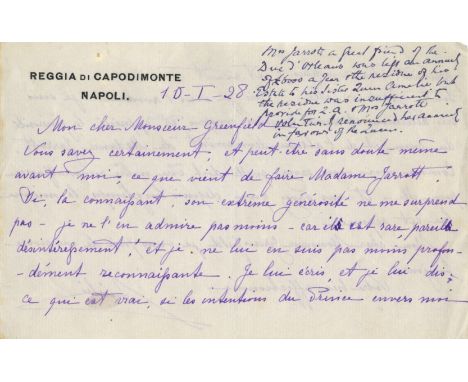 REGGIA DI CAPODIMONTE
NAPOLI.
10-I-28.
Mrs Jarrott a great friend of the
Duc d'Orleans was left an annuity
of £6000 a year & the residue of his
Estate to his sister Queen Amelie but
the residue was insufficient to
provide for Q. A. & Mrs Jarrott
voluntarily renounced her annuity
in favour of the Queen.
Mon cher Monsieur Greenfield
Vous savez certainement, et peut être sans doute même
avant moi ce que vient de faire Madame Jarrott
De la connaissant, son extrême générosité ne me surprend
pas - je ne l'en admire pas moins - car il est rare pareil
désintéressement! et je ne lui en suis pas moins profon-
-dément reconnaissante. Je lui écris, et je lui dis
ce qui est vrai, si les intentions du Prince envers moi